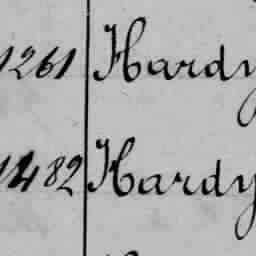 1261 Hardy
1482 Hardy